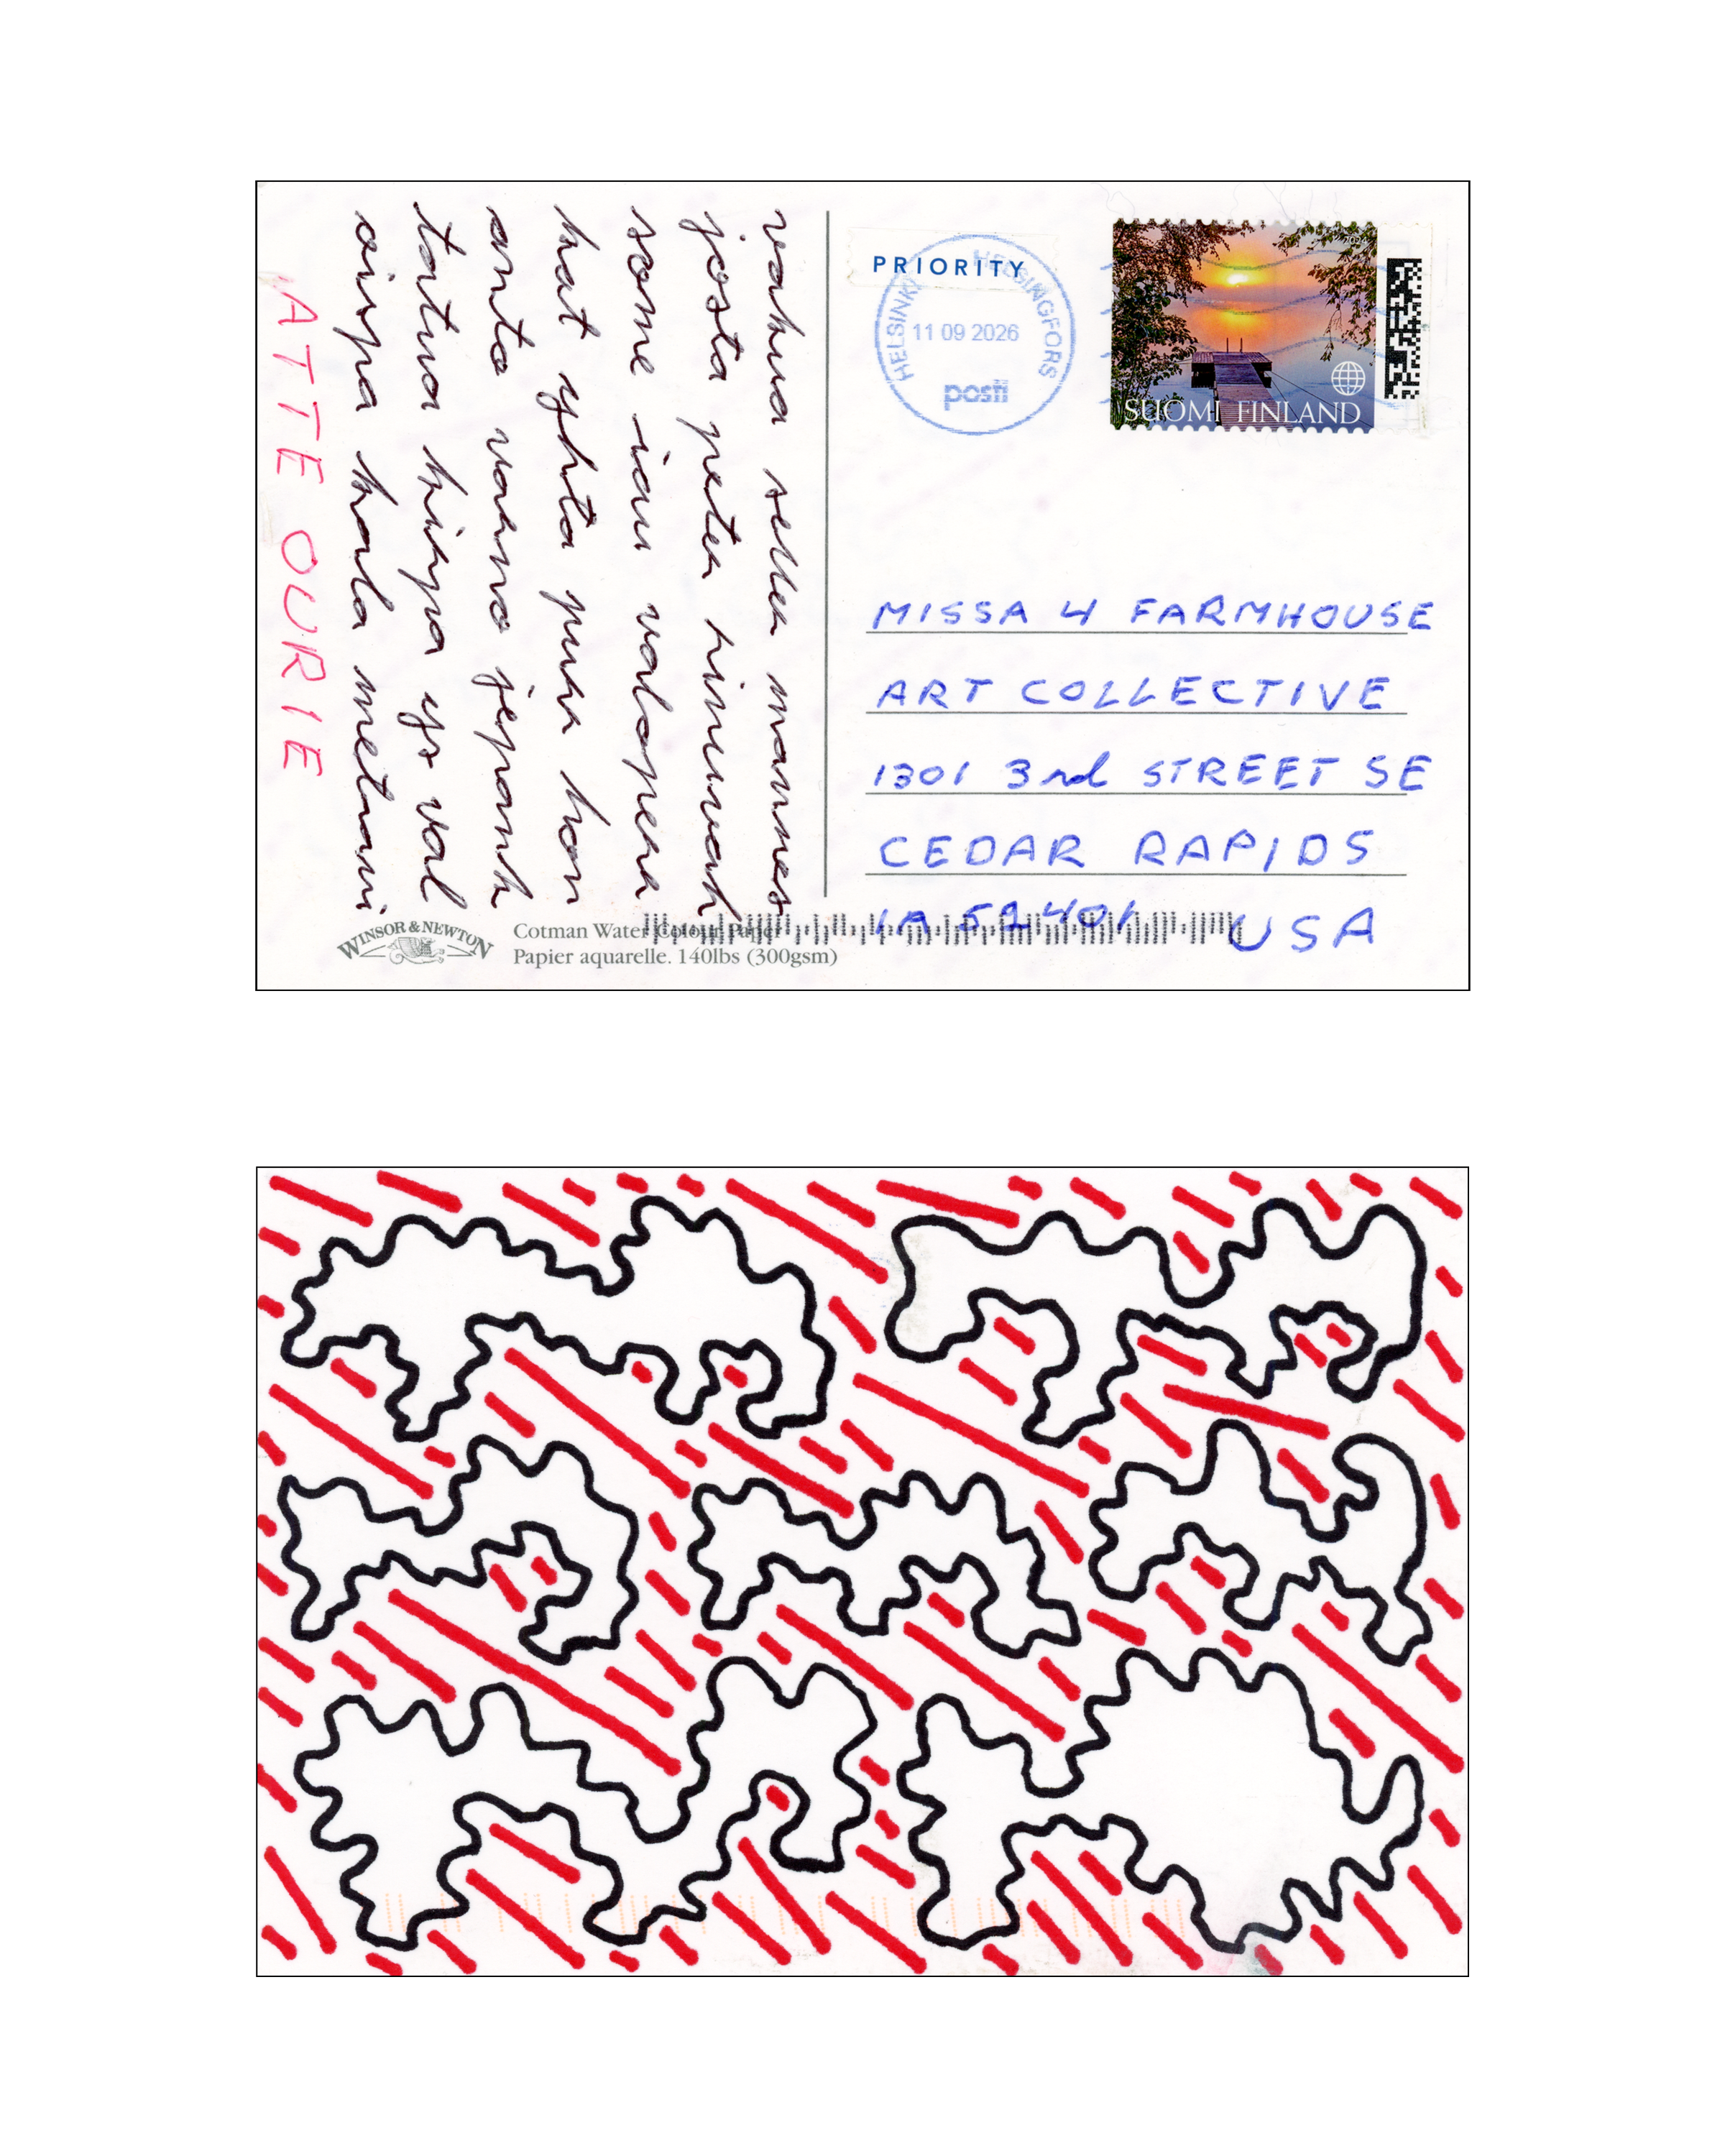 vahva sellu mannes
josta peten rinnvah
some iau valopena
hat yhta puu hon
anta vanna jepank
tatua hinpa ys val
oispa hala metuni
ATTE OURIE
PRIORITY
HELSINKI HELSINGFORS
11 09 2026
posti
SUOMI FINLAND
MISSA 4 FARMHOUSE
ART COLLECTIVE
1301 3rd STREET SE
CEDAR RAPIDS
IA 52401 USA
WINSOR & NEWTON
Cotman Water Colour Paper
Papier aquarelle. 140lbs (300gsm)